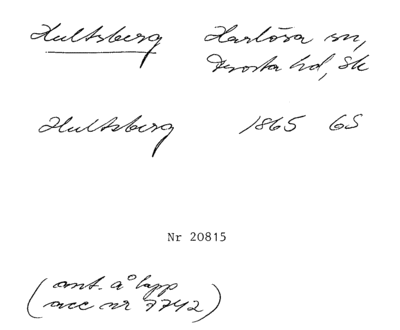 Hultsberg Harlösa sn,
Frosta hd, Sk
Hultsberg 1865 GS
Nr 20815
(ant. å lapp
acc nr 7742)